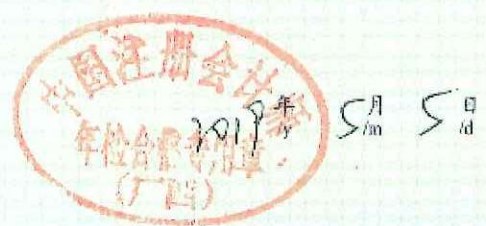 中国注册会计师
年检合格专用章
(广西)
2019年 5月 5日
y /m /d